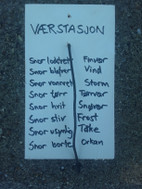 VÆRSTASJON
Snor loddrett Finvær
Snor blafrer Vind
Snor vannrett Storm
Snor tørr Tørrvær
Snor hvit Snøvær
Snor stiv Frost
Snor usynlig Tåke
Snor borte Orkan